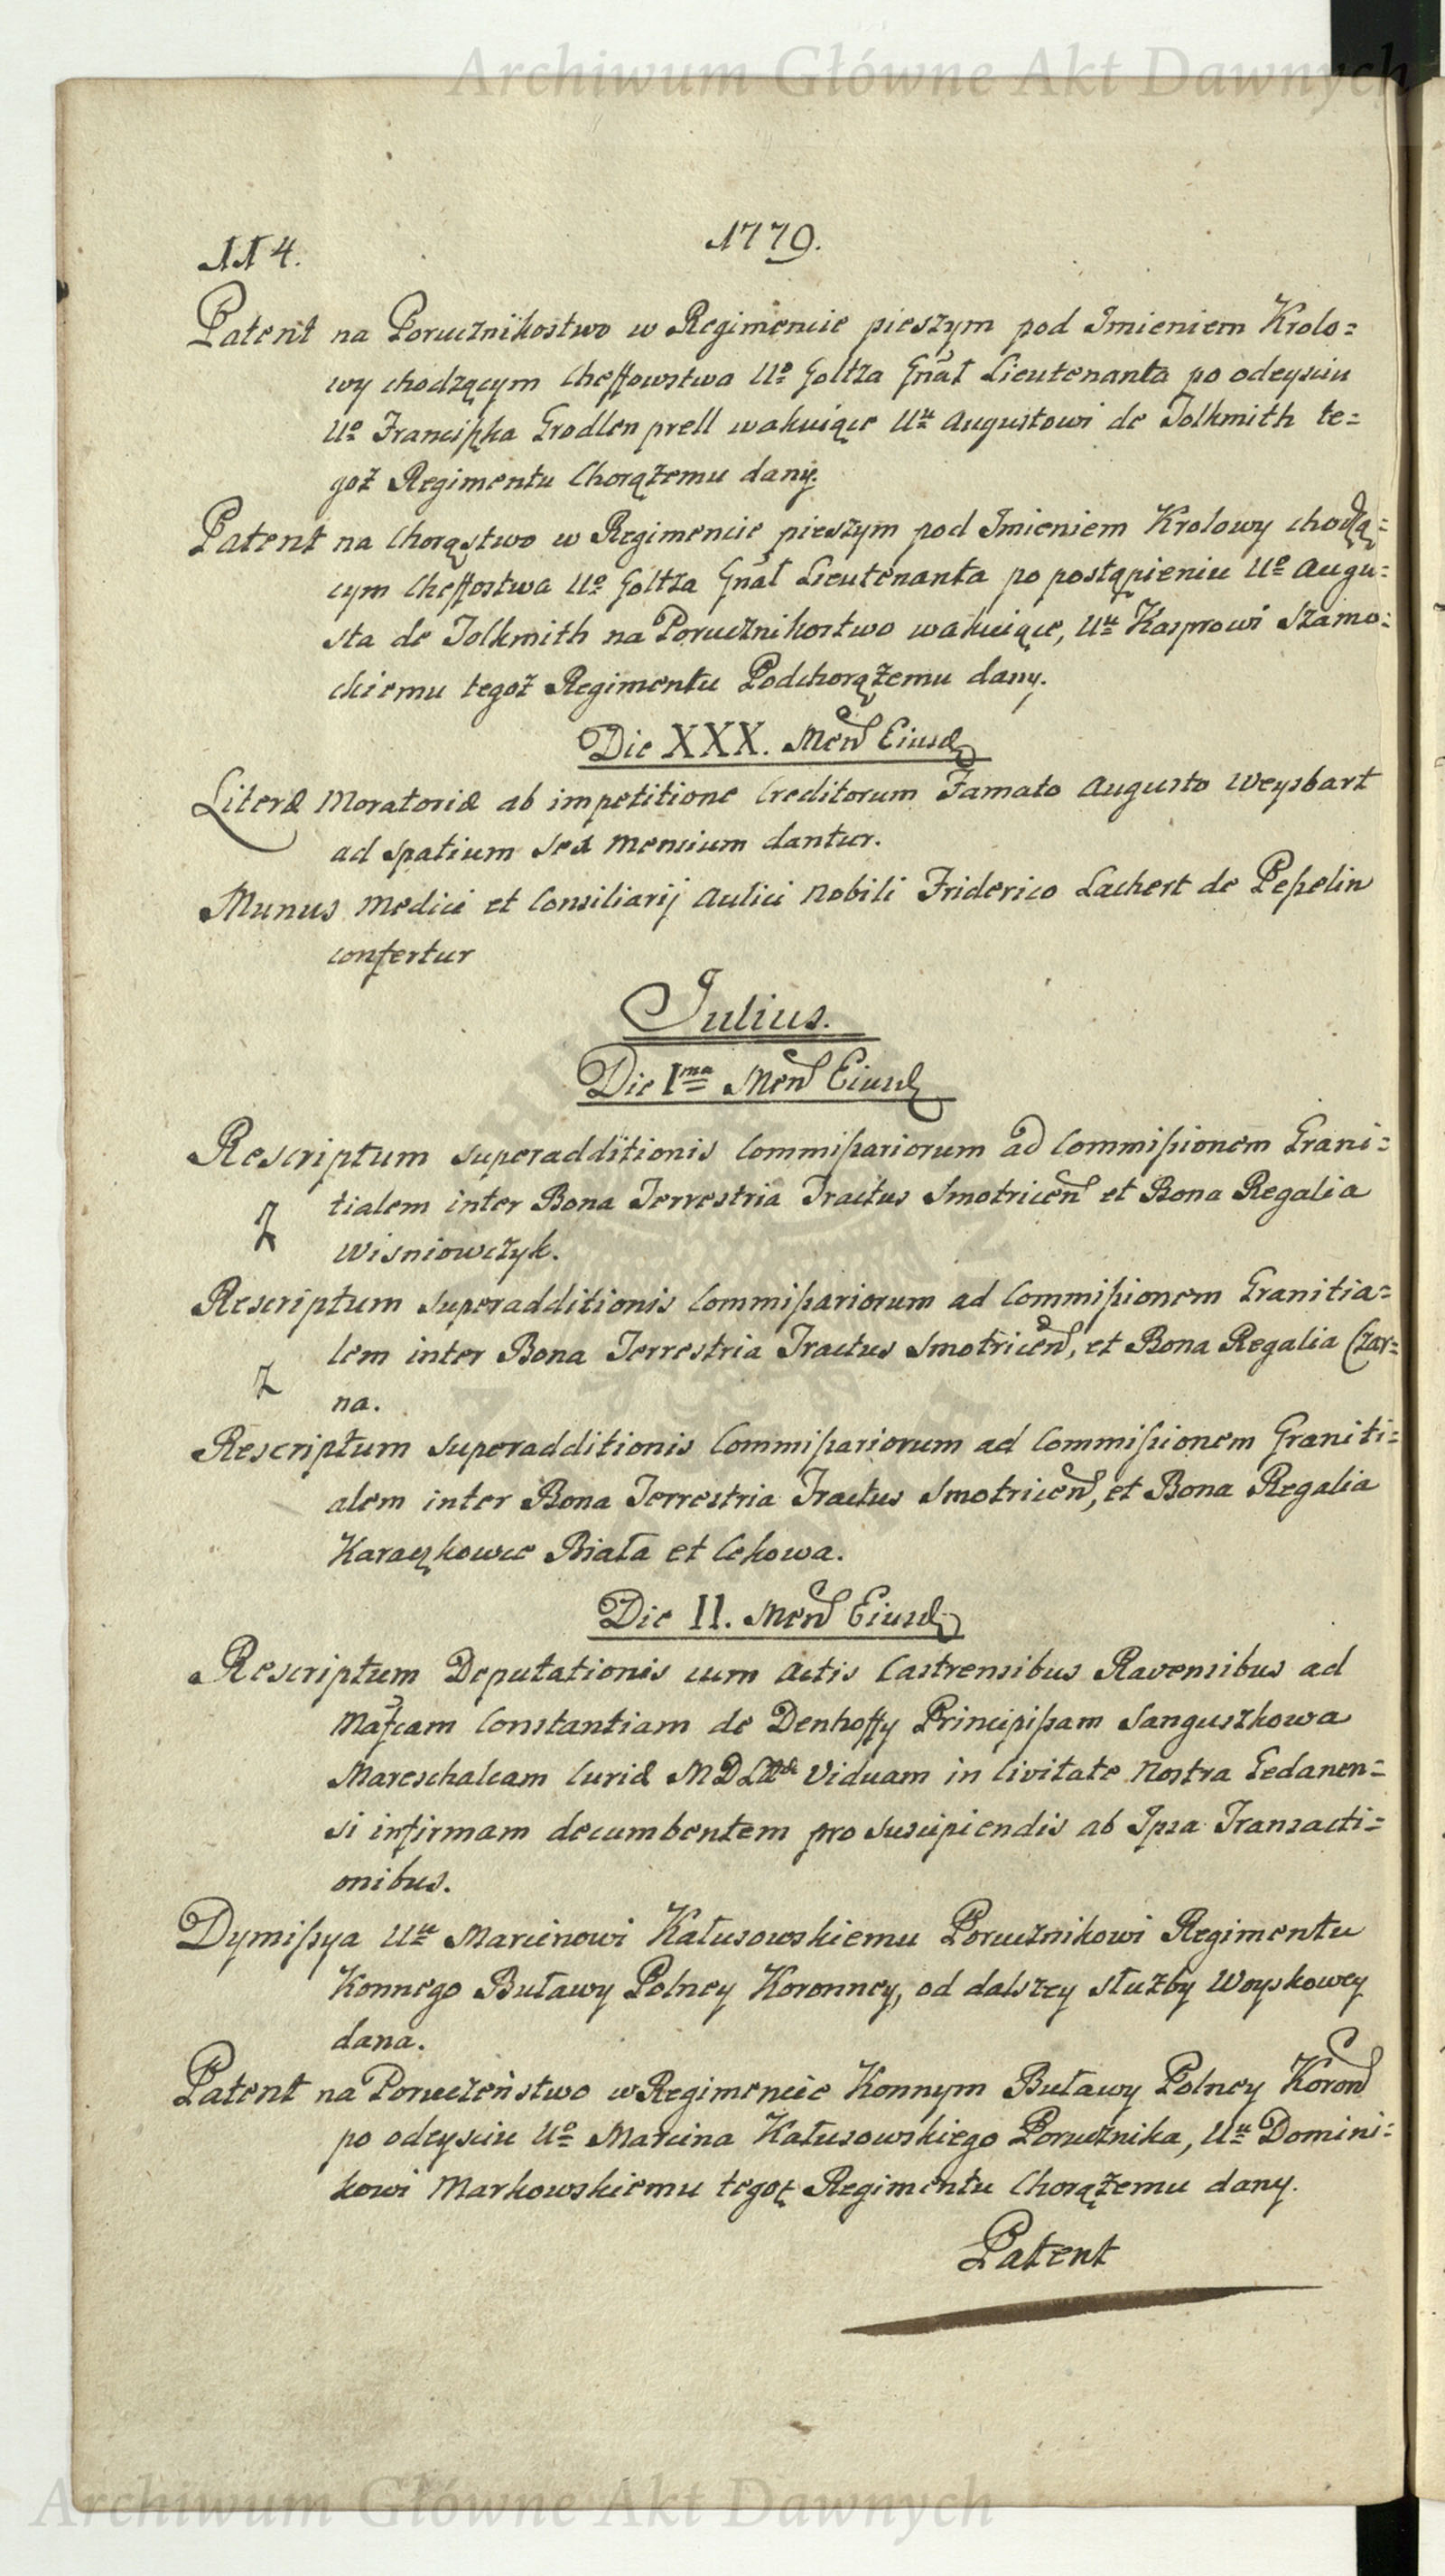 Archiwum Główne Akt Dawnych
114.
1779.
Patent na Porucznikostwo w Regimencie pieszym pod Jmieniem Krolo=
wy chodzącym Cheffowstwa Uo Goltza Gnał Lieutenanta po odeyściu
Uo Franciszka Grodlen prell wakuiące Uu Augustowi de Tolkmith te=
goż Regimentu Chorążemu dany.
Patent na Chorąstwo w Regimencie pieszym pod Jmieniem Krolowy chodzą=
cym Cheffostwa Uo Goltza Gnał Lieutenanta po postąpieniu Uo Augu=
sta de Tolkmith na Porucznikostwo wakuiące, Uu Kasprowi Szamo=
ckiemu tegoż Regimentu Podchorążemu dany.
Die XXX. Men Eiusd
Literæ Moratoriæ ab impetitione Creditorum Famato Augusto Weysbart
ad spatium sex Mensium dantur.
Munus Medici et Consiliarij Aulici Nobili Friderico Lachert de Peßelin
confertur
Julius.
Die Ima Men Eiusd
Rescriptum superadditionis Commißariorum ad Commißionem Grani=
tialem inter Bona Terrestria Tractus Smotricen et Bona Regalia
Wisniowczyk.
Rescriptum superadditionis Commißariorum ad Commißionem Granitia=
lem inter Bona Terrestria Tractus Smotricen, et Bona Regalia Czar=
na.
Rescriptum superadditionis Commißariorum ad Commißionem Graniti=
alem inter Bona Terrestria Tractus Smotricen, et Bona Regalia
Karaczkowce Biała et Cekowa.
Die II. Men Eiusd
Rescriptum Deputationis cum Actis Castrensibus Ravensibus ad
Mafcam Constantiam de Denhoffy Principißam Sanguszkowa
Mareschalcam Curiæ MDL Viduam in Civitate Nostra Gedanen=
si infirmam decumbentem pro suscipiendis ab Ipsa Transacti=
onibus.
Dymißya Uu Marcinowi Kałusowskiemu Porucznikowi Regimentu
Konnego Buławy Polney Koronney, od dalszey służby Woyskowey
dana.
Patent na Poruczeństwo w Regimencie Konnym Buławy Polney Koron
po odeyściu Uo Marcina Kałusowskiego Porucznika, Uu Domini=
kowi Markowskiemu tegoż Regimentu Chorążemu dany.
Patent
Archiwum Główne Akt Dawnych